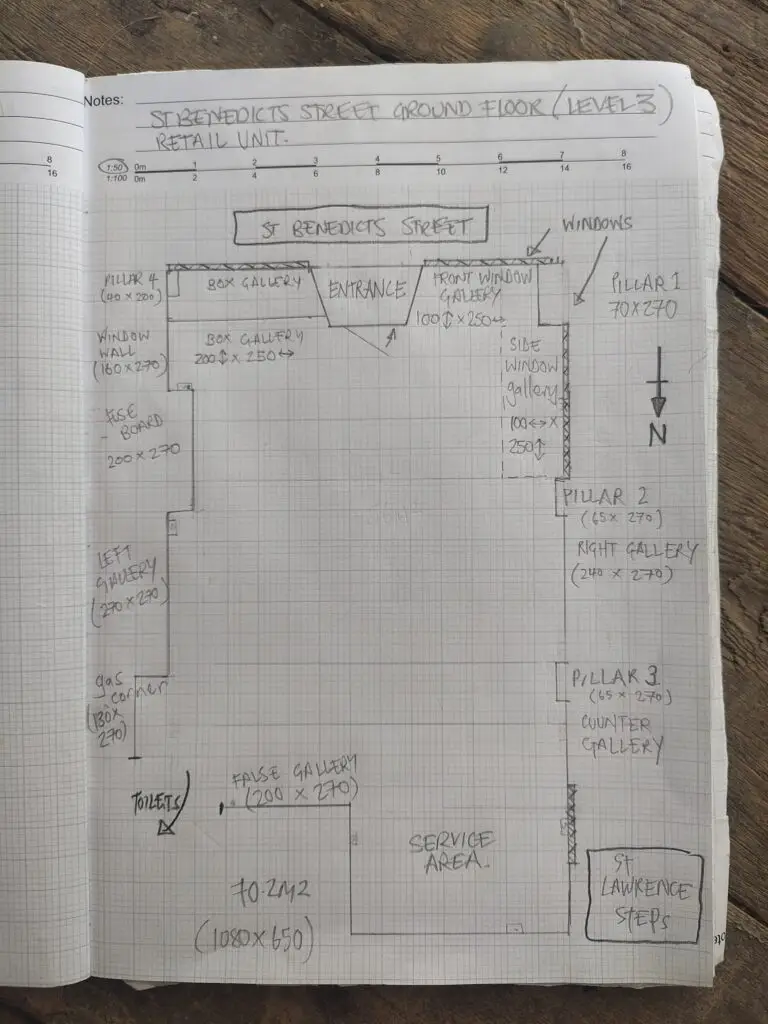 Notes:
ST BENEDICTS STREET GROUND FLOOR (LEVEL 3)
RETAIL UNIT.
8
16
1:50 0m 1 2 3 4 5 6 7 8
1:100 0m 2 4 6 8 10 12 14 16
ST BENEDICTS STREET
WINDOWS
PILLAR 4
(40 x 200)
BOX GALLERY
ENTRANCE
FRONT WINDOW
GALLERY
100↕ x 250↔
PILLAR 1
70 x 270
WINDOW
WALL
(160 x 270)
BOX GALLERY
200↕ x 250↔
SIDE
WINDOW
gallery
100↔ x
250↕
N
FUSE
- BOARD
200 x 270
PILLAR 2
(65 x 270)
RIGHT GALLERY
(240 x 270)
LEFT
GALLERY
(270 x 270)
gas
corner
(130 x
270)
PILLAR 3
(65 x 270)
COUNTER
GALLERY
TOILETS
FALSE GALLERY
(200 x 270)
SERVICE
AREA.
70.2M2
(1080 x 650)
ST
LAWRENCE
STEPS